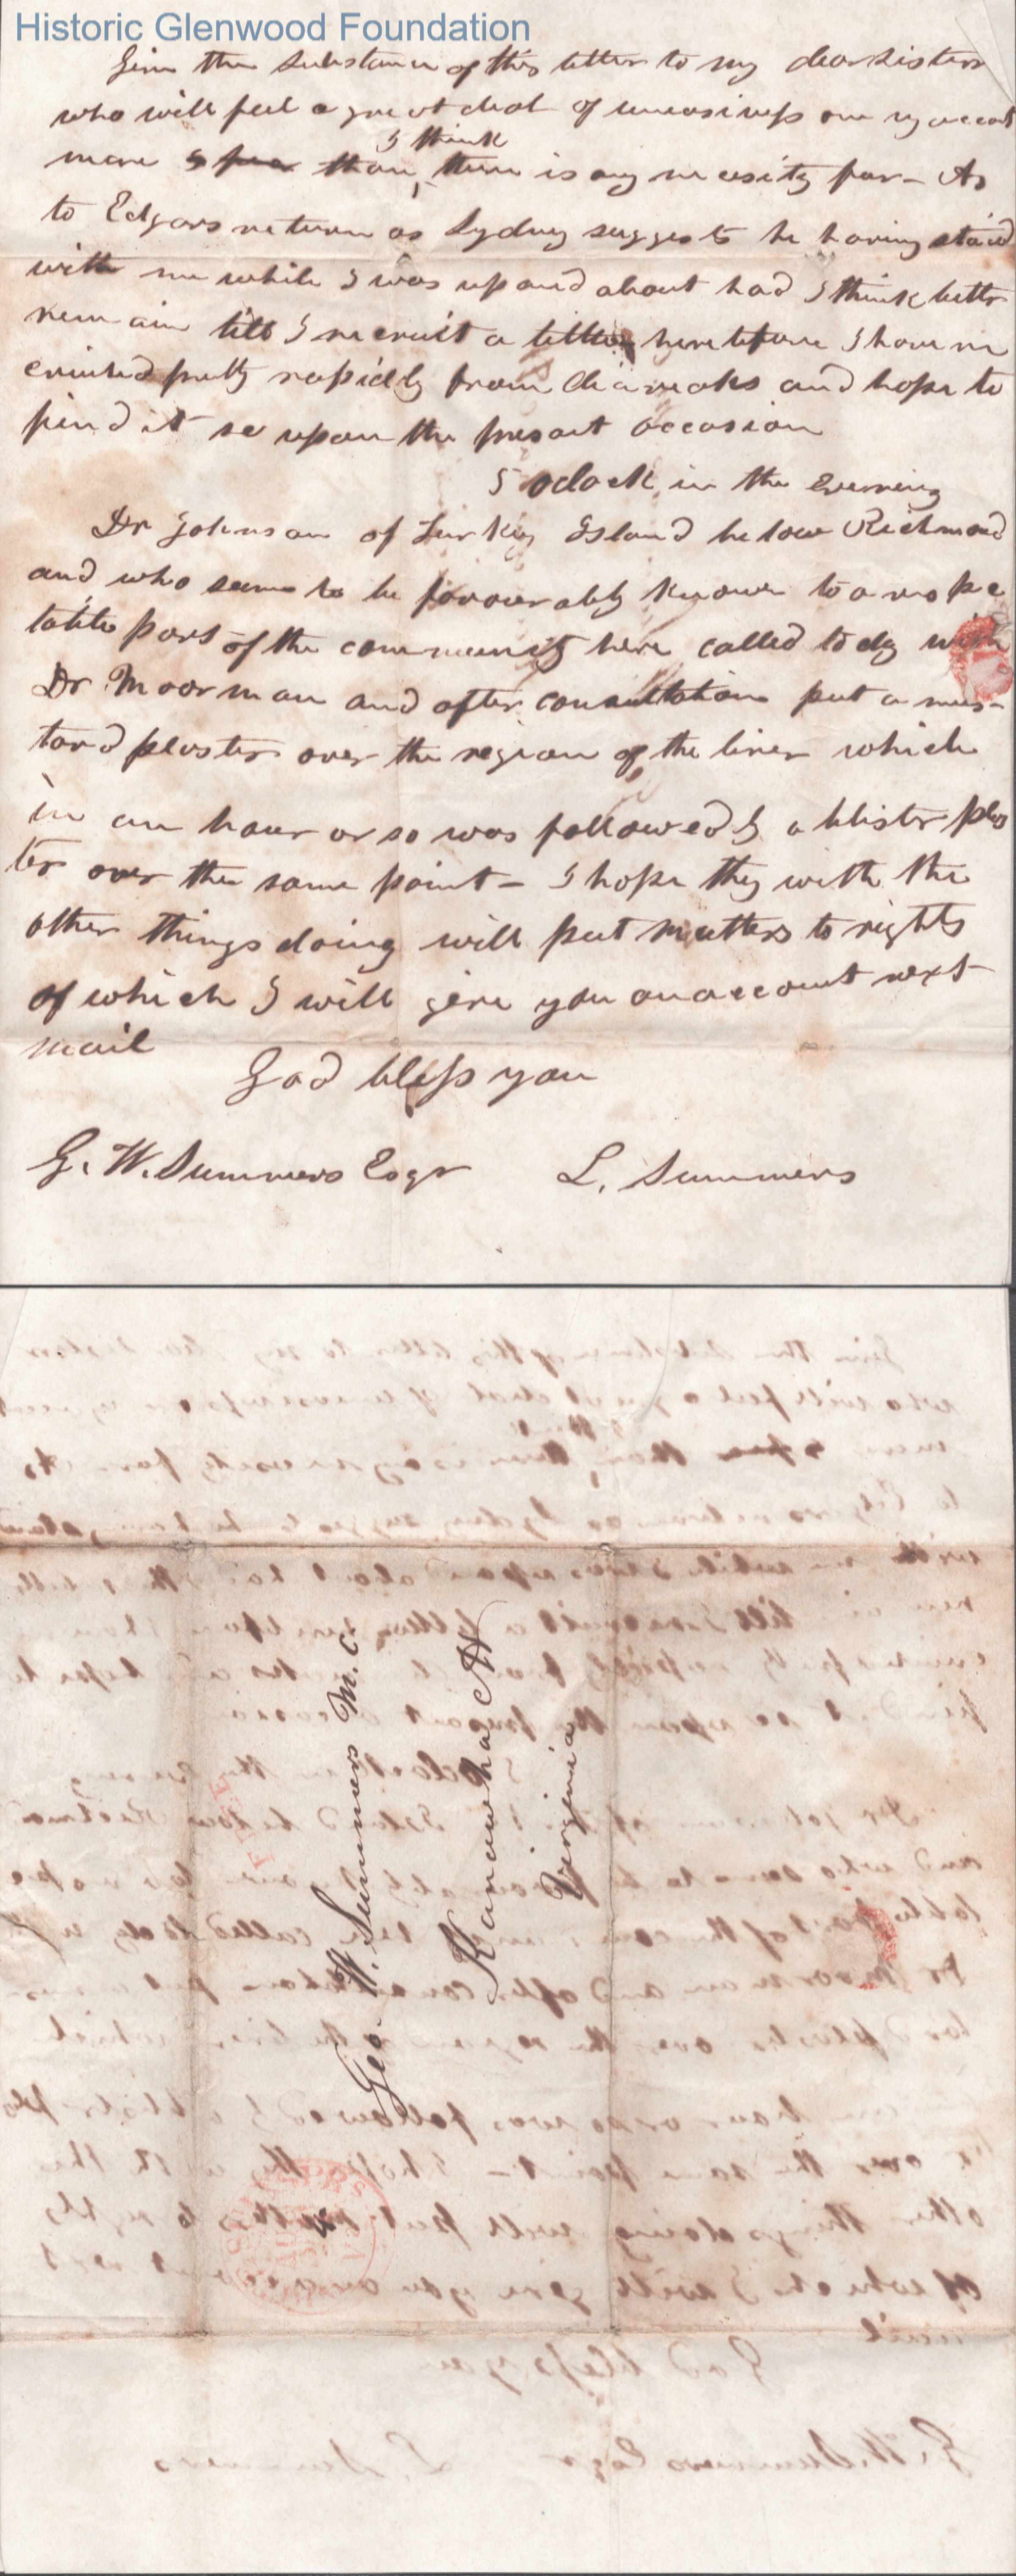 Historic Glenwood Foundation
Give the substance of this letter to my dear sisters
who will feel a great deal of uneasiness on my account
I think
more I fear than, there is any necesity for – As
to Edgars return as Sydney suggests he having staid
with me while I was up and about had I think better
remain till I recruit a little here before I have re
cruited pretty rapidly from attacks and hope to
find it so upon the present occasion
5 oclock in the evening
Dr Johnson of Turkey Island below Richmond
and who seems to be favourably known to a respe
table part of the community here called to dy with
Dr Moorman and after consultation put a mus–
tard plaster over the region of the liver which
in an hour or so was followed by a blister plas
ter over the same point – I hope they with the
other things doing will put matters to rights
of which I will give you an account next
mail
God bless you
G. W. Summers Esqr L. Summers
Geo. W. Summers M. C
Kanawha C H
Virginia